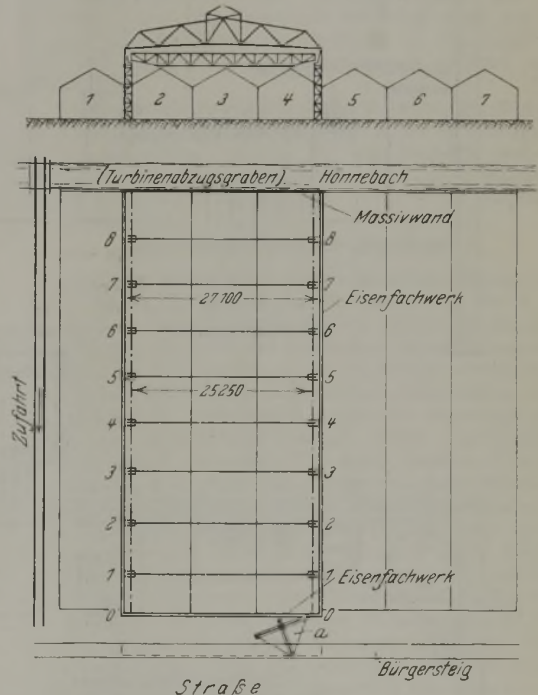 1 2 3 4 5 6 7
(Turbinenabzugsgraben) Honnebach
Massivwand
8 8
7 7
27700
Eisenfachwerk
6 6
5 5
25250
Zufahrt
4 4
3 3
2 2
1 1
Eisenfachwerk
0 0
a
Bürgersteig
Straße